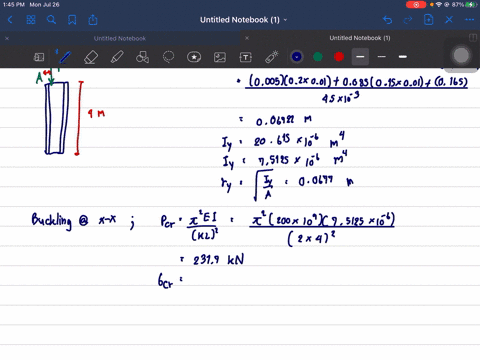 1:45 PM Mon Jul 26
Untitled Notebook
Untitled Notebook
Untitled Notebook
= (0.005)(0.2 x 0.01) + 0.085 (0.15 x 0.01) + (0.165)
45 x 10⁻³
A
4 m
= 0.06422 m
Iy = 20.615 x 10⁻⁶ m⁴
Iy = 7,5125 x 10⁻⁶ m⁴
ry = √(Iy/A) = 0.0677 m
Buckling @ x-x ; Pcr = π²EI/(KL)² = π²(200 x 10⁹)(7.5125 x 10⁻⁶)/(2 x 4)²
= 231.9 kN
σcr =